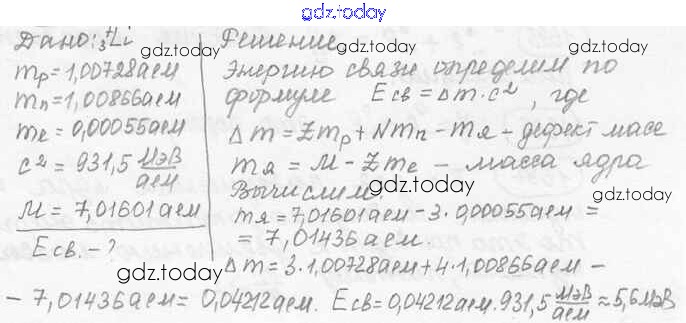 gdz.today
Дано: ₃⁷Li
mp=1,00728аем
mn=1,00866аем
me=0,00055аем
c²=931,5 МэВ/аем
M=7,01601аем
Eсв.-?
Решение
gdz.today
Энергию связи определим по
формуле Eсв=Δm·c², где
gdz.today
Δm=Zmp+Nmn-mя-дефект масс
mя=M-Zme-масса ядра
Вычислим:
gdz.today
mя=7,01601аем-3·0,00055аем=
=7,01436аем
Δm=3·1,00728аем+4·1,00866аем-
-7,01436аем=0,04212аем. Eсв=0,04212аем·931,5 МэВ/аем≈5,6МэВ
gdz.today
gdz.today
gdz.today
gdz.today